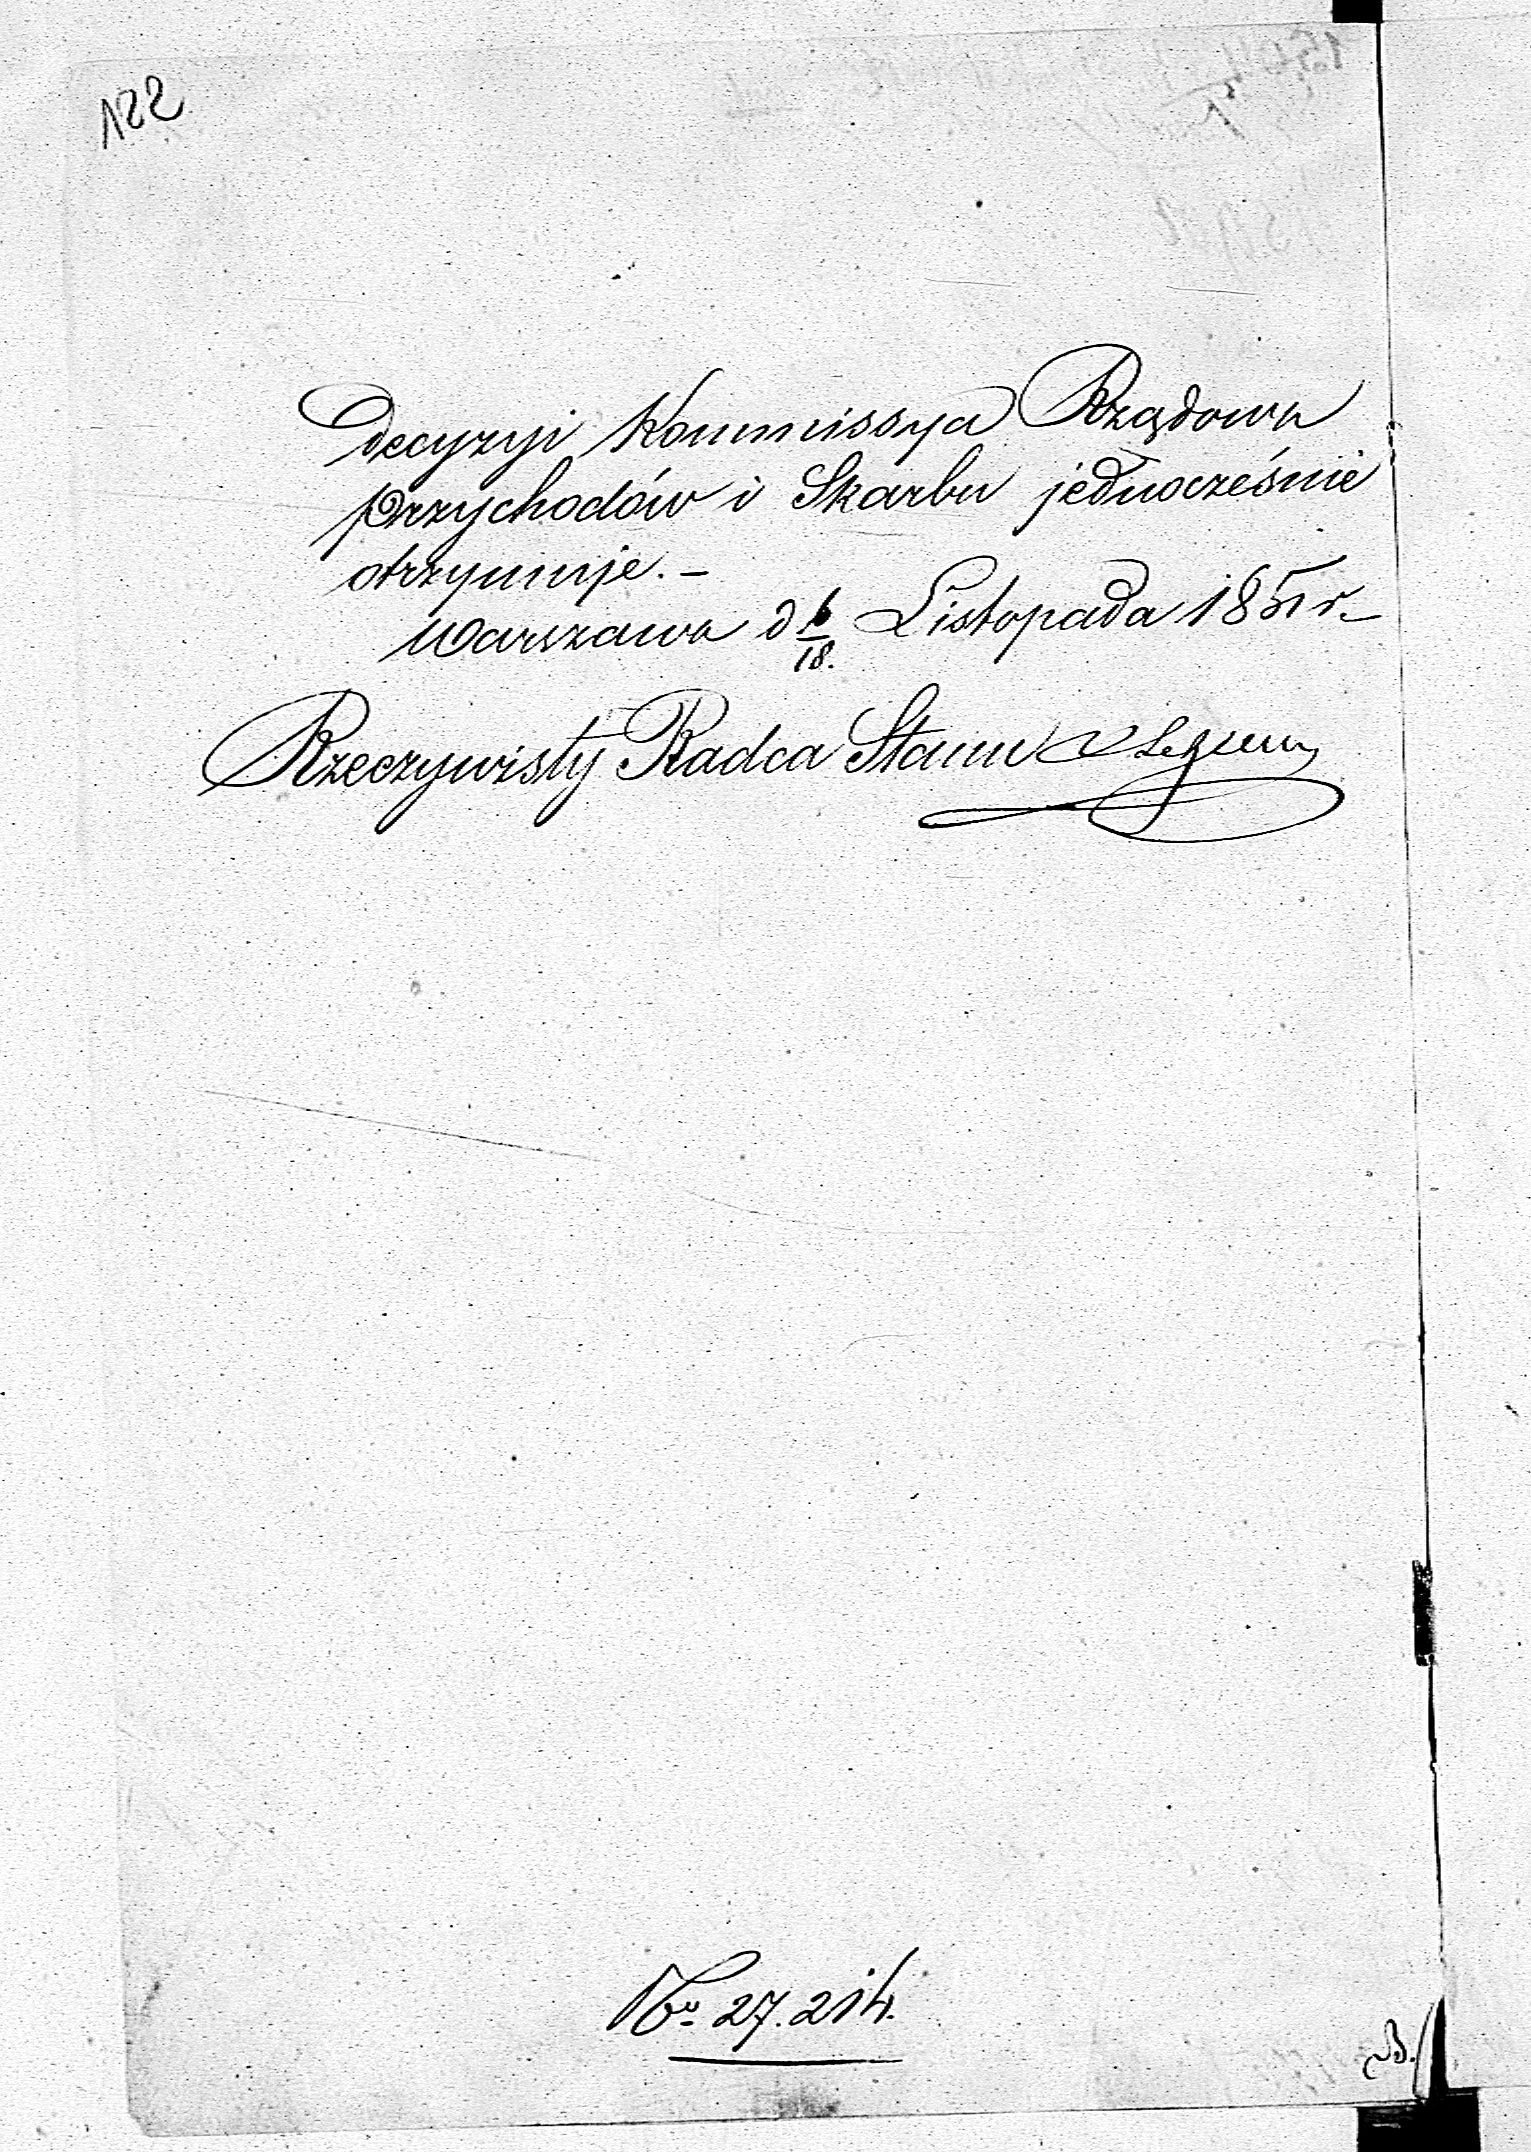 122
decyzyi Kommissya Rządowa
Przychodów i Skarbu jednocześnie
otrzymuje. –
Warszawa d 6/18. Listopada 1851 r.
Rzeczywisty Radca Stanu
No. 27.214.
B.